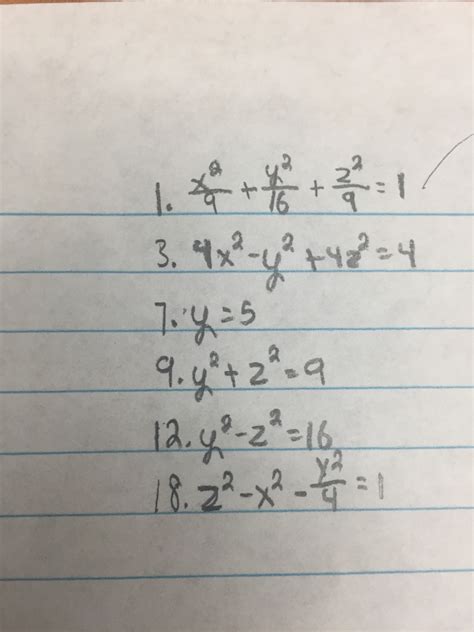 1. x²/9 + y²/16 + z²/9 = 1
3. 4x² - y² + 4z² = 4
7. y = 5
9. y² + z² = 9
12. y² - z² = 16
18. z² - x² - y²/4 = 1